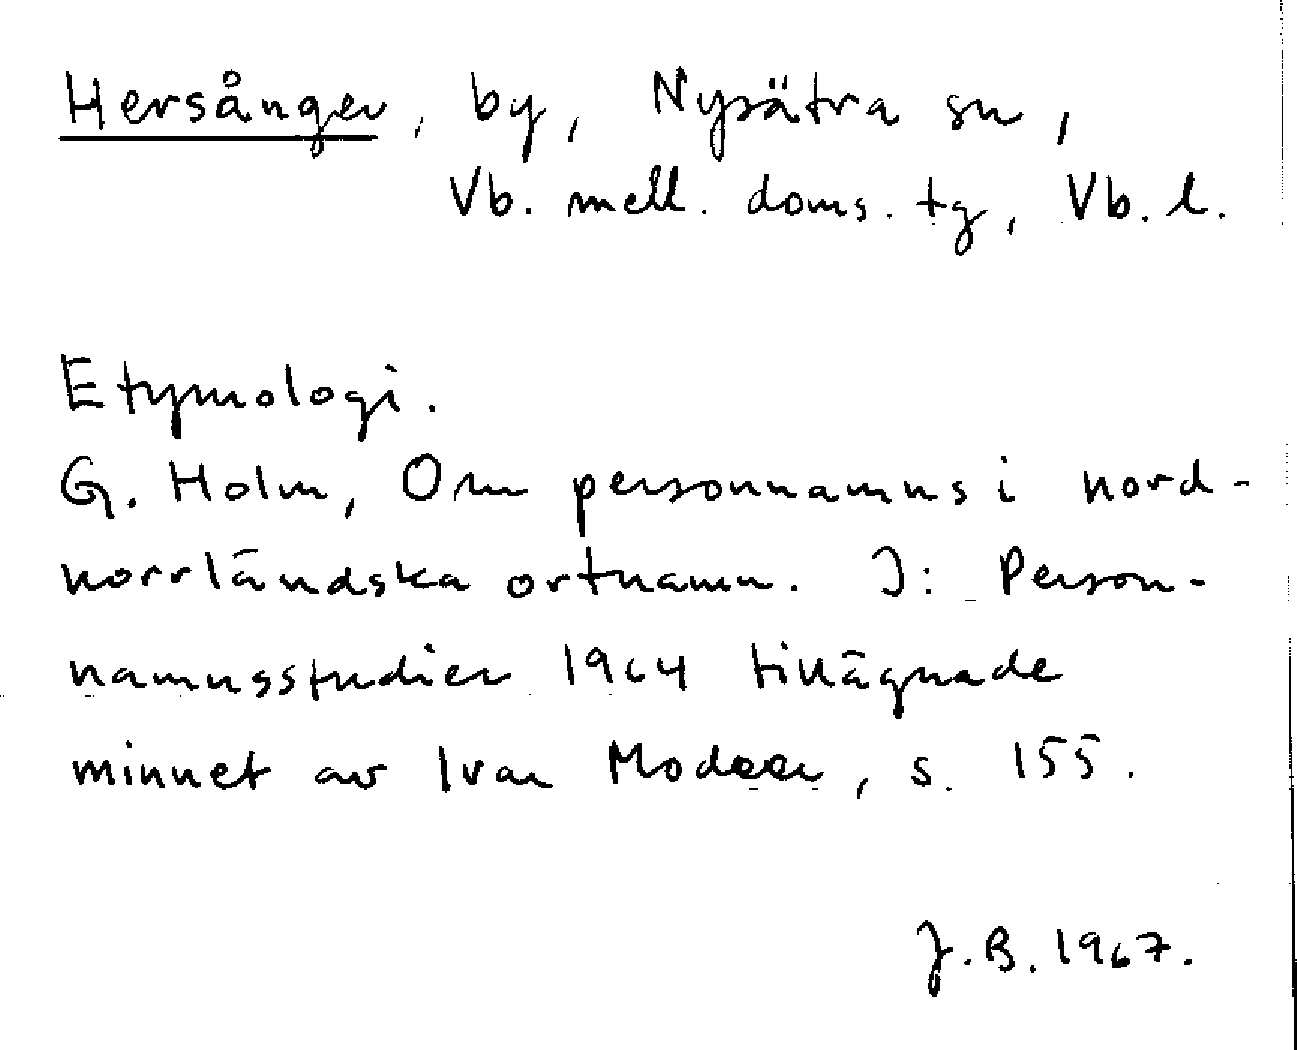 Hersånger, by, Nysätra sn,
Vb. mell. doms. tg, Vb. l.
Etymologi.
G. Holm, Om personnamns i nord-
norrländska ortnamn. I: Person-
namnsstudier 1964 tillägnade
minnet av Ivar Modéer, s. 155.
J.B. 1967.